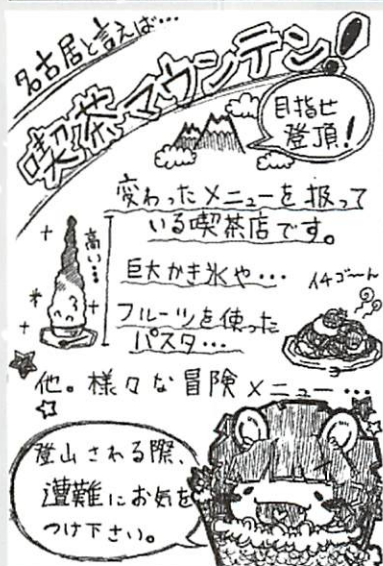 名古居と言えば…
喫茶マウンテン!
目指せ
登頂!
変わったメニューを扱って
いる喫茶店です。
高い…
巨大かき氷や…
イチゴ〜ん
フルーツを使った
パスタ…
他。様々な冒険メニュー…
登山される際、
遭難にお気を
つけ下さい。